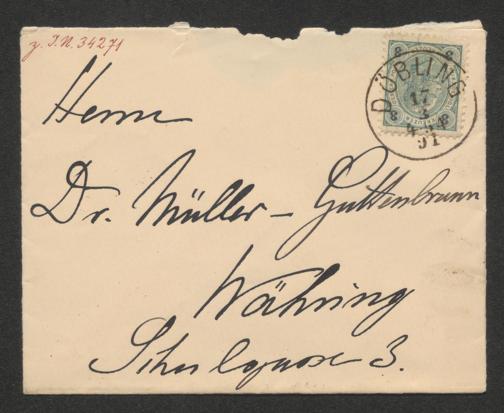 z. I.N. 34271
DÖBLING
17
4
91
3
3
3
3
Herrn
Dr. Müller-Guttenbrunn
Währing
Schulgasse 3.